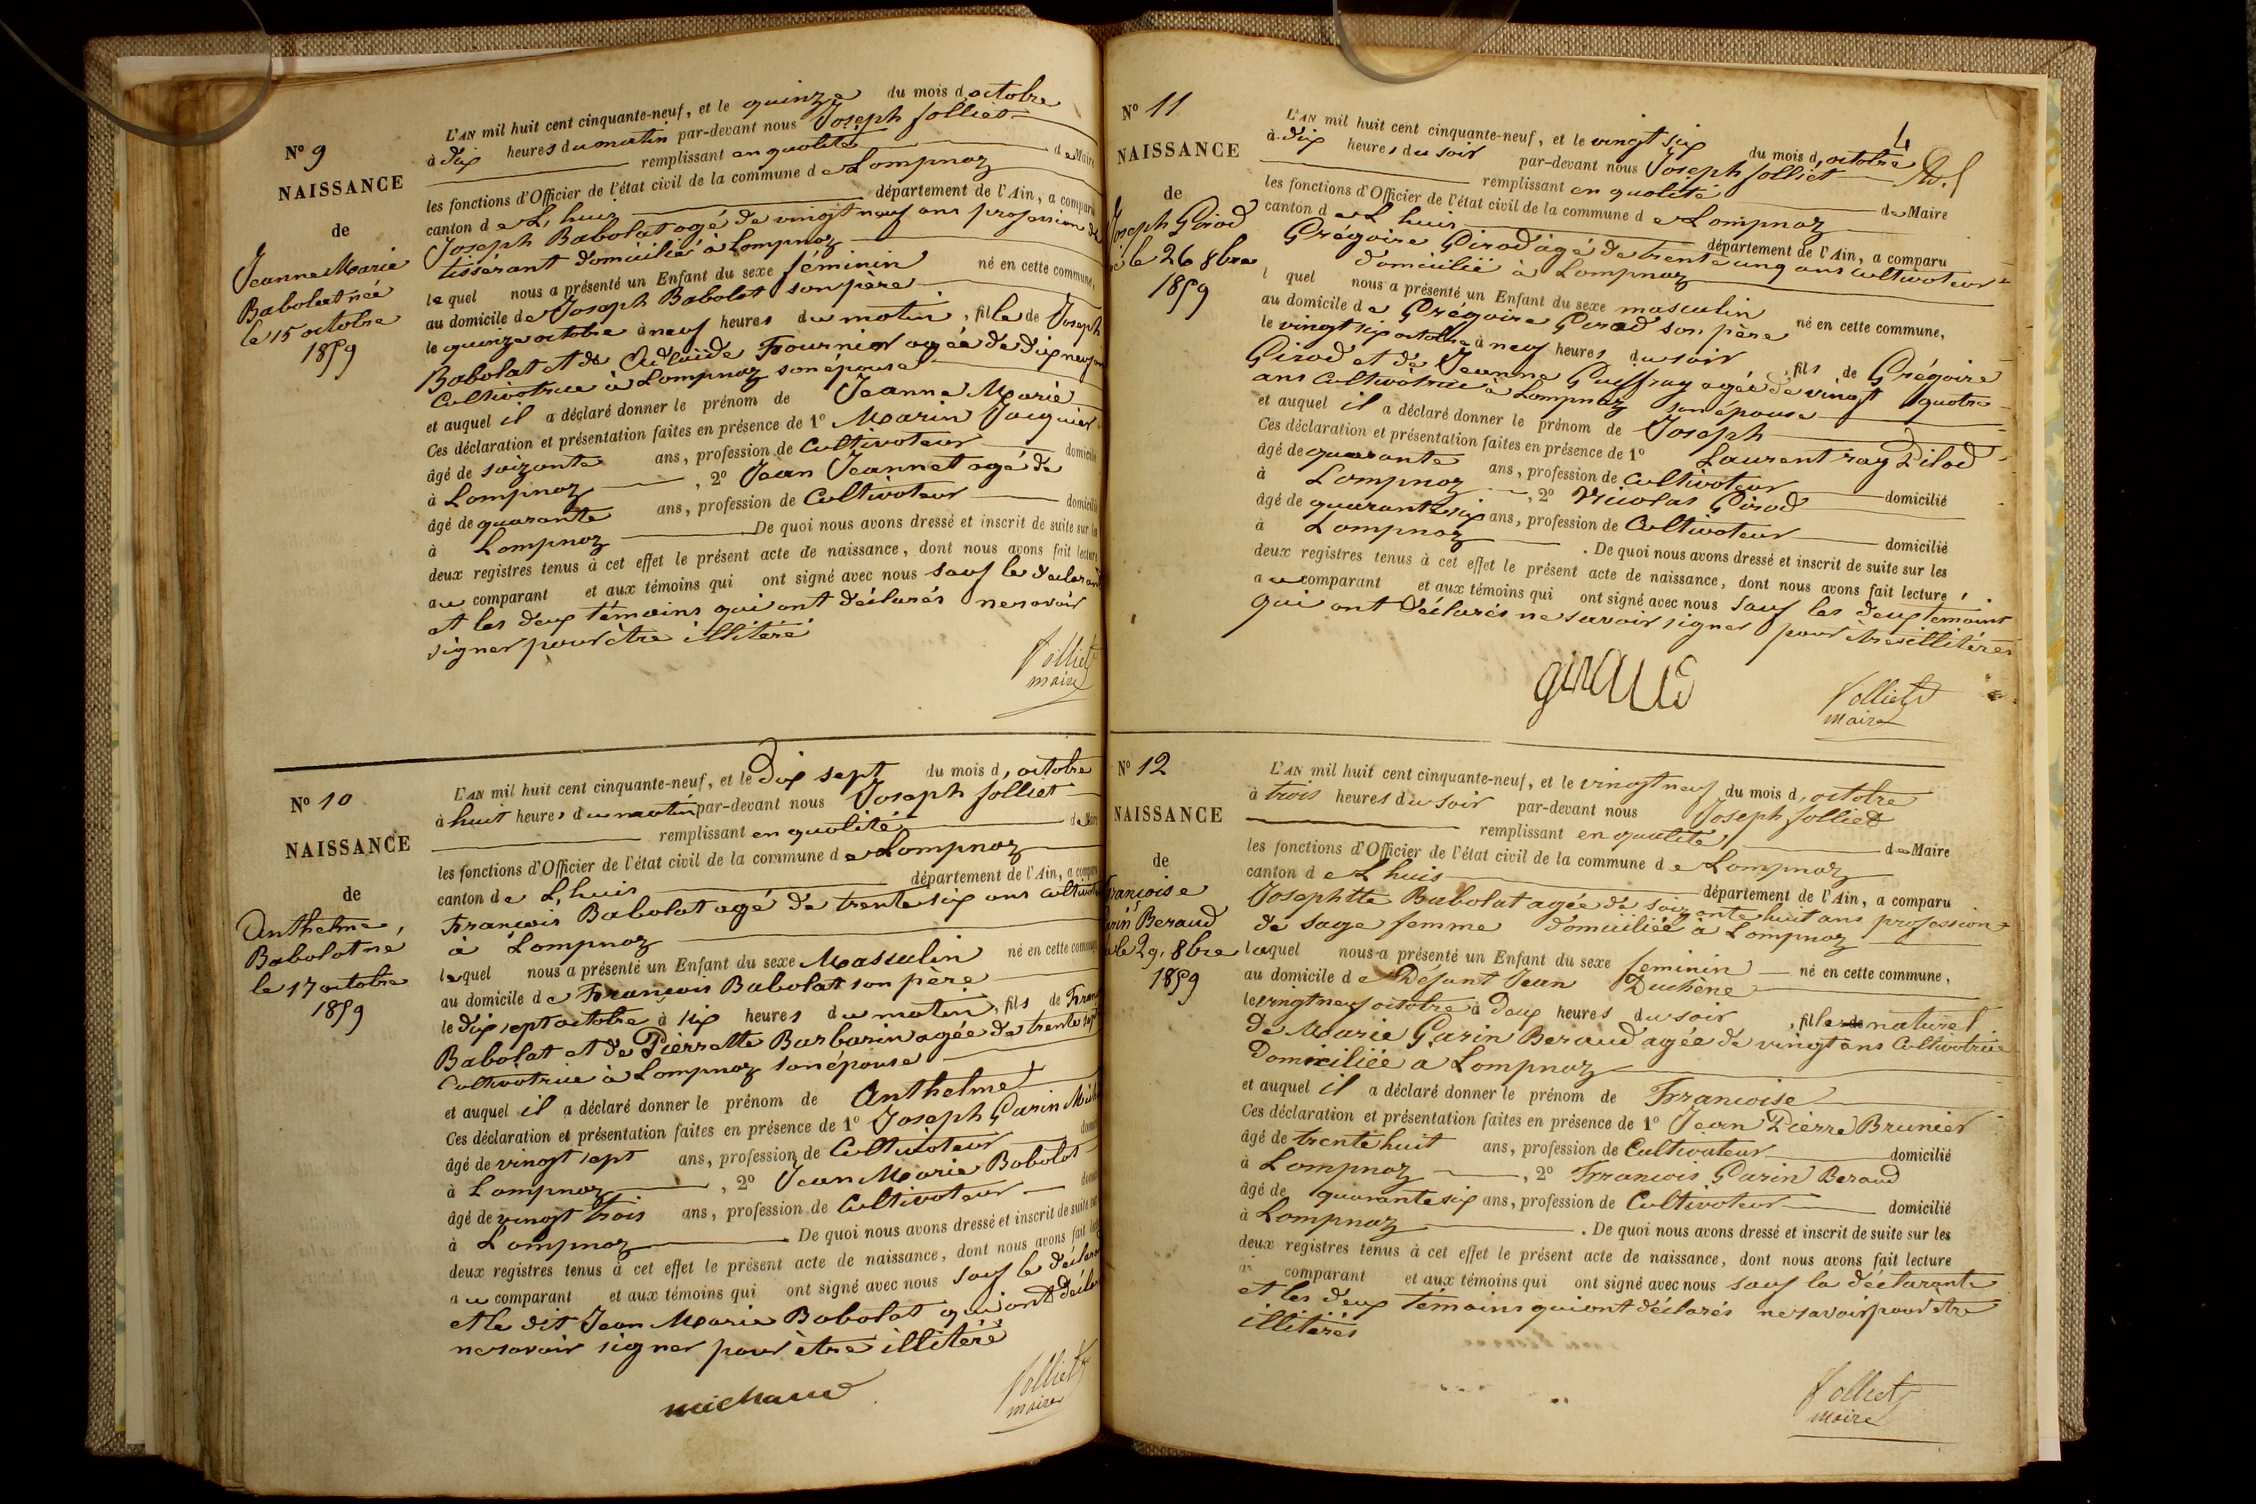 N° 9
NAISSANCE
de
Jeanne Marie
Babolat née
le 15 octobre
1859
L'AN mil huit cent cinquante-neuf, et le quinze du mois d'octobre
à dix heures du matin par-devant nous Joseph Jolliet
remplissant en qualité de Maire
les fonctions d'Officier de l'état civil de la commune de Lompnaz
canton de L'huis département de l'Ain, a comparu
Joseph Babolat agé de vingt neuf ans profession de
tissérant domicilié à Lompnaz
lequel nous a présenté un Enfant du sexe féminin né en cette commune,
au domicile de Joseph Babolat son père
le quinze octobre à neuf heures du matin, fille de Joseph
Babolat et de Adelaïde Fournier agée de dix neuf ans
Cultivatrice à Lompnaz son épouse
et auquel il a déclaré donner le prénom de Jeanne Marie
Ces déclaration et présentation faites en présence de 1° Marin Jacquier
âgé de soizante ans, profession de Cultivateur domicilié
à Lompnaz, 2° Jean Jeannet agé de
âgé de quarante ans, profession de Cultivateur domicilié
à Lompnaz De quoi nous avons dressé et inscrit de suite sur les
deux registres tenus à cet effet le présent acte de naissance, dont nous avons fait lecture
au comparant et aux témoins qui ont signé avec nous sauf le déclarant
et les deux témoins qui ont déclarés ne savoir
signer pour être illitéré
Jolliet
maire
N° 10
NAISSANCE
de
Anthelme
Babolat né
le 17 octobre
1859
L'AN mil huit cent cinquante-neuf, et le Dix sept du mois d'octobre
à huit heures du matin par-devant nous Joseph Jolliet
remplissant en qualité de Maire
les fonctions d'Officier de l'état civil de la commune de Lompnaz
canton de L'huis département de l'Ain, a comparu
François Babolat agé de trente six ans cultivateur
à Lompnaz
lequel nous a présenté un Enfant du sexe Masculin né en cette commune
au domicile de François Babolat son père
le dix sept octobre à six heures du matin, fils de François
Babolat et de Pierrette Barbarin agée de trente sept
Cultivatrice à Lompnaz son épouse
et auquel il a déclaré donner le prénom de Anthelme
Ces déclaration et présentation faites en présence de 1° Joseph Garin
âgé de vingt sept ans, profession de Cultivateur
à Lompnaz, 2° Jean Marie Babolat
âgé de vingt trois ans, profession de Cultivateur
à Lompnaz De quoi nous avons dressé et inscrit de suite sur
deux registres tenus à cet effet le présent acte de naissance, dont nous avons fait
au comparant et aux témoins qui ont signé avec nous sauf le déclarant
et le dit Jean Marie Babolat qui ont déclaré
ne savoir signer pour être illitéré
michaud
Jolliet
maire
N° 11
NAISSANCE
de
Joseph Girod
né le 26 8bre
1859
4
L'AN mil huit cent cinquante-neuf, et le vingt six du mois d'octobre
à dix heures du soir par-devant nous Joseph Jolliet
remplissant en qualité de Maire
les fonctions d'Officier de l'état civil de la commune de Lompnaz
canton de Lhuis département de l'Ain, a comparu
Grégoire Girod agé de trente cinq ans cultivateur
domicilié à Lompnaz
l quel nous a présenté un Enfant du sexe masculin né en cette commune,
au domicile de Grégoire Girod son père
le vingt six octobre à neuf heures du soir, fils de Grégoire
Girod et de Jeanne Guiffray agée de vingt quatre
ans Cultivatrice à Lompnaz son épouse
et auquel il a déclaré donner le prénom de Joseph
Ces déclaration et présentation faites en présence de 1° Laurent ray Pilod
âgé de quarante ans, profession de cultivateur
à Lompnaz, 2° Nicolas Girod domicilié
âgé de quarante six ans, profession de Cultivateur
à Lompnaz domicilié
. De quoi nous avons dressé et inscrit de suite sur les
deux registres tenus à cet effet le présent acte de naissance, dont nous avons fait lecture,
au comparant et aux témoins qui ont signé avec nous sauf les deux témoins
qui ont déclarés ne savoir signer pour être illitérés
giraud
Jolliet
maire
N° 12
NAISSANCE
de
Françoise
Garin Beraud
née le 29. 8bre
1859
L'AN mil huit cent cinquante-neuf, et le vingt neuf du mois d'octobre
à trois heures du soir par-devant nous Joseph Jolliet
remplissant en qualité, de Maire
les fonctions d'Officier de l'état civil de la commune de Lompnaz
canton de Lhuis département de l'Ain, a comparu
Josephtte Babolat agée de soizante huit ans profession
de sage femme domiciliée à Lompnaz
laquel nous a présenté un Enfant du sexe feminin né en cette commune,
au domicile de Défunt Jean Duchêne
le vingt neuf octobre à deux heures du soir, fille de naturel
de Marie Garin Beraud agée de vingt ans Cultivatrice
Domiciliée a Lompnaz
et auquel il a déclaré donner le prénom de Françoise
Ces déclaration et présentation faites en présence de 1° Jean Pierre Brunier
âgé de trente huit ans, profession de Cultivateur domicilié
à Lompnaz, 2° François Garin Beraud
âgé de quarante six ans, profession de Cultivateur domicilié
à Lompnaz. De quoi nous avons dressé et inscrit de suite sur les
deux registres tenus à cet effet le présent acte de naissance, dont nous avons fait lecture
a comparant et aux témoins qui ont signé avec nous sauf la déclarante
et les deux témoins qui ont déclarés ne savoir pour être
illitérés
Jolliet
maire